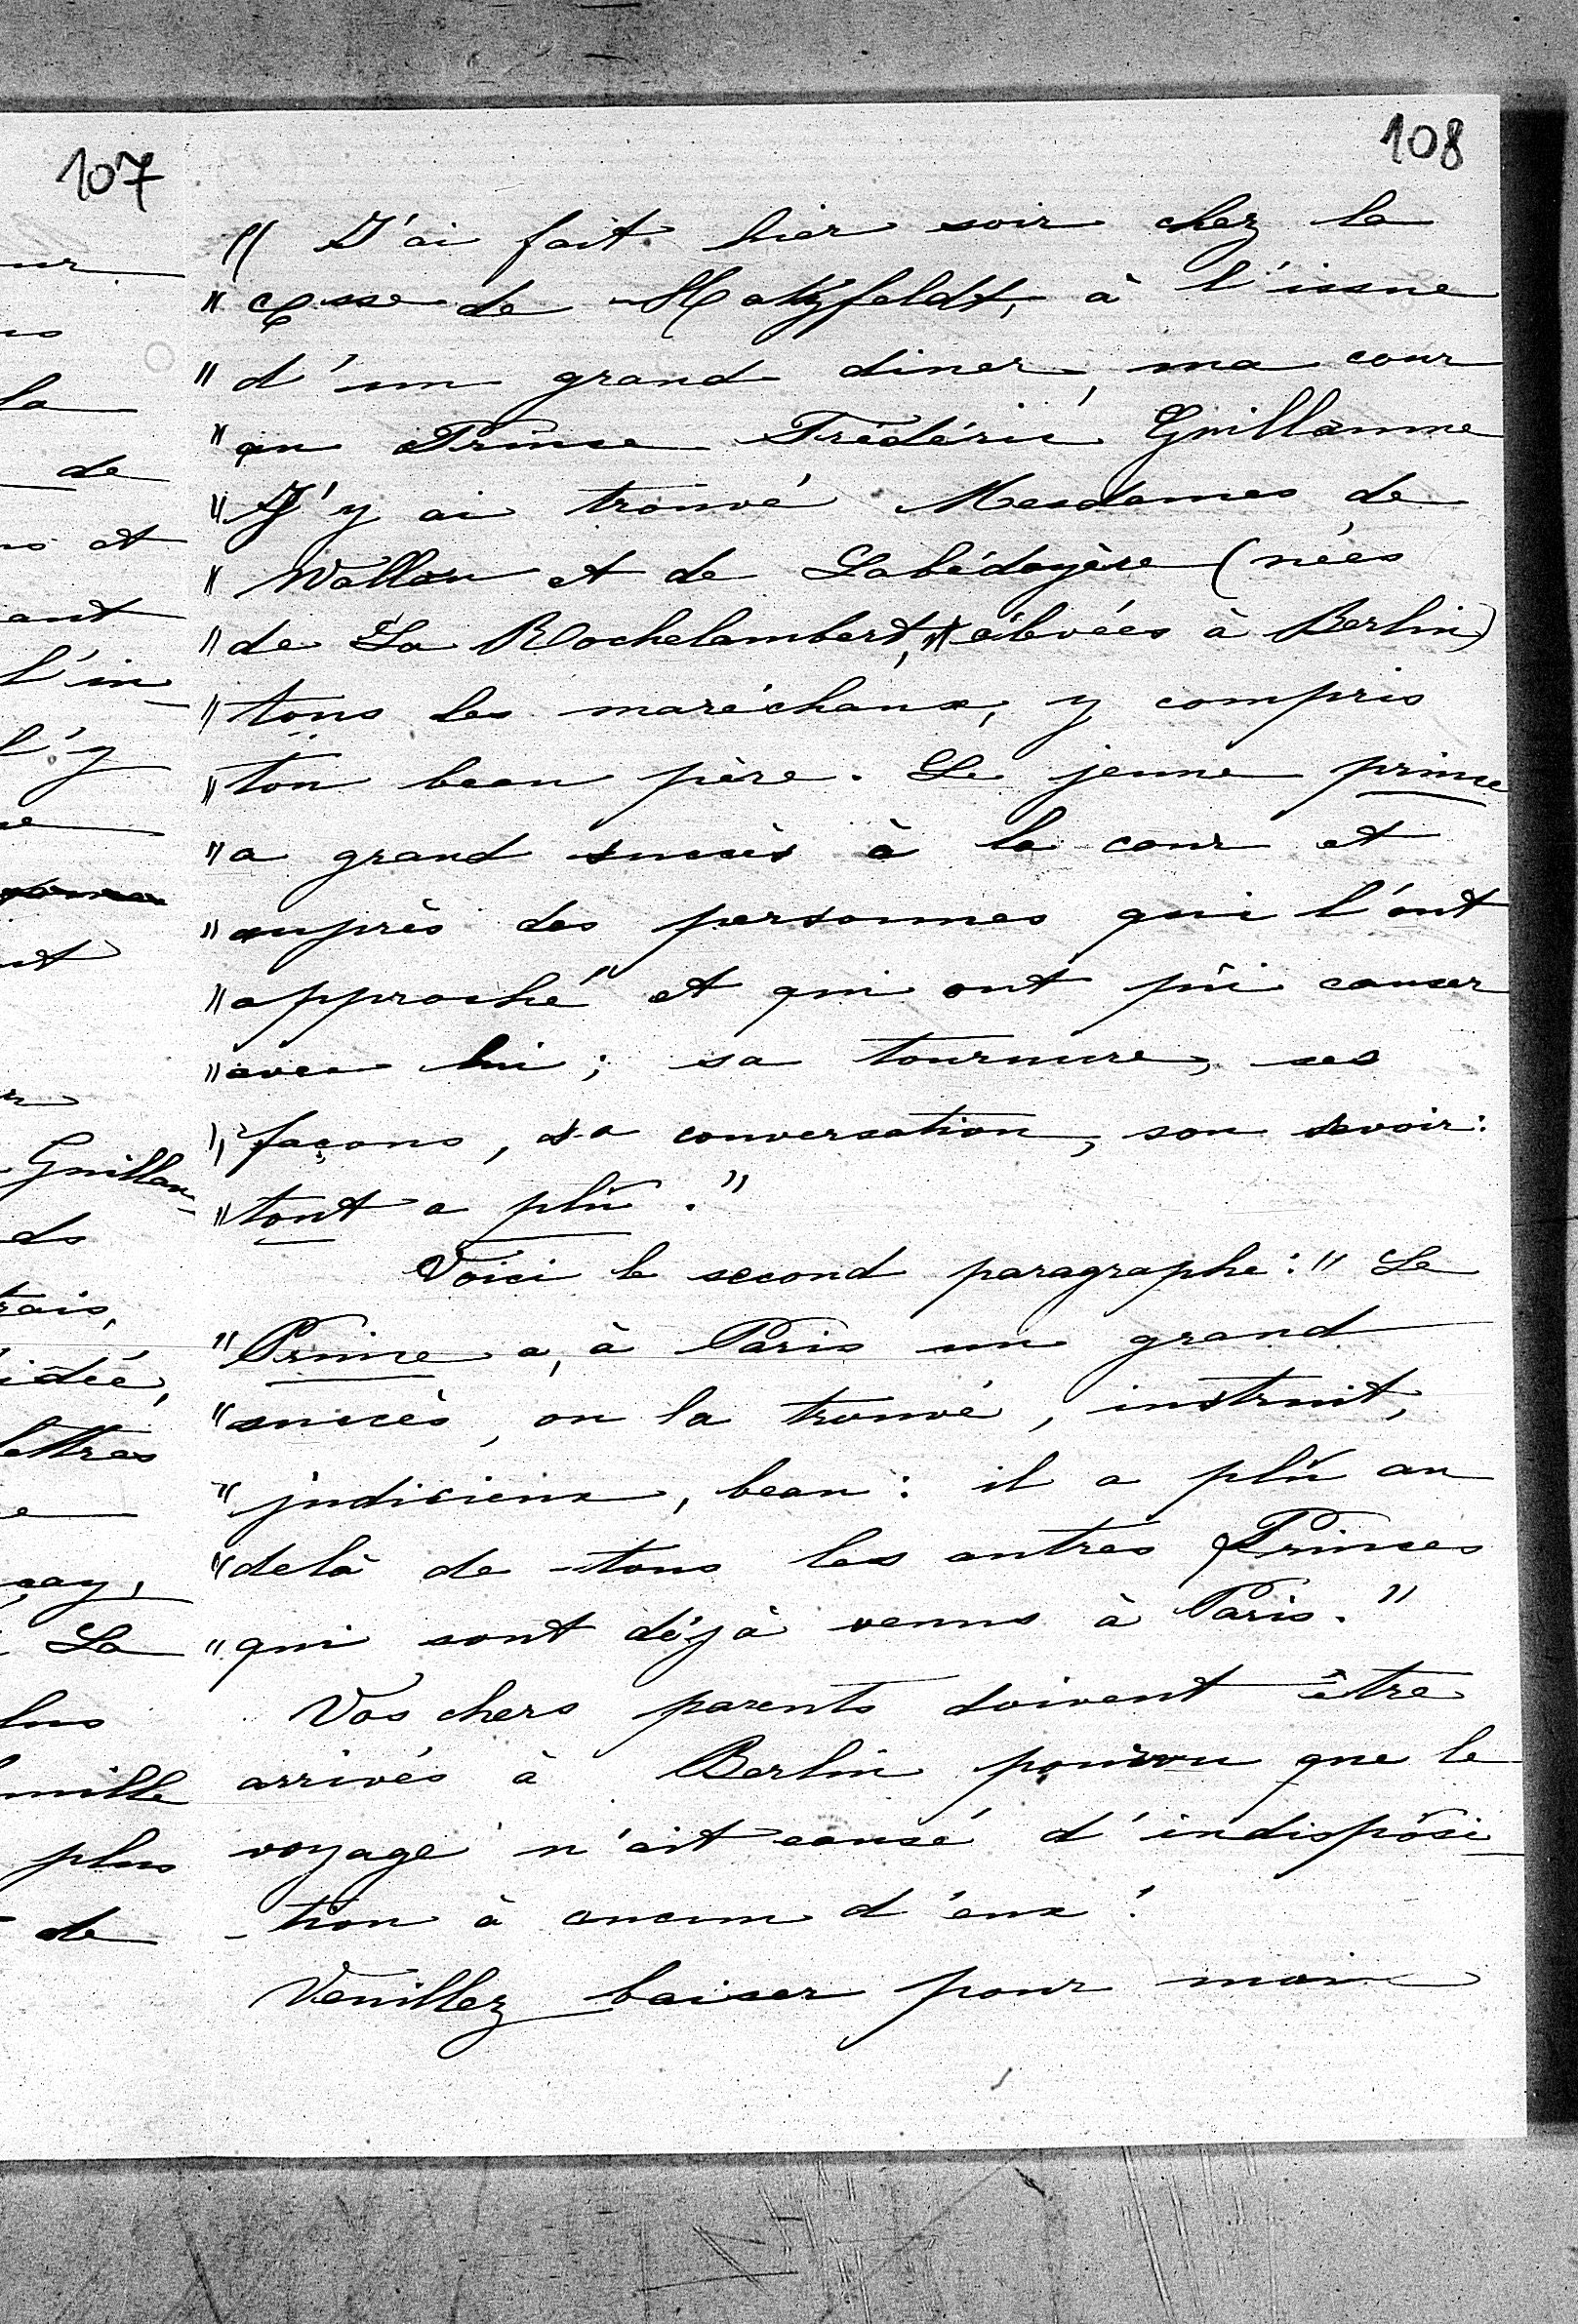 107
108
" J'ai fait hier soir chez la
" Csse de Hatzfeldt, à l'issue
" d'un grand diner, ma cour
" au Prince Frédéric Guillaume
" J'y ai trouvé Mesdames de
" et de Labédoyère (nées
" de La Rochelambert, élevées à Berlin)
" tous les maréchaux, y compris
" ton beau père. Le jeune prince
" a grand succès à la cour et
" auprès des personnes qui l'ont
" approché et qui ont pû causer
" avec lui; sa tournure, ses
" façons, sa conversation, son savoir:
" tout a plû."
Voici le second paragraphe: " Le
" Prince a, à Paris un grand
" succès, on la trouvé, instruit,
" judicieux, beau: il a plû au
" delà de tous les autres Princes
" qui sont déjà venus à Paris."
Vos chers parents doivent être
arrivés à Berlin pourvu que le
voyage n'ait causé d'indisposi-
-tion à aucun d'eux!
Veuillez baiser pour moi